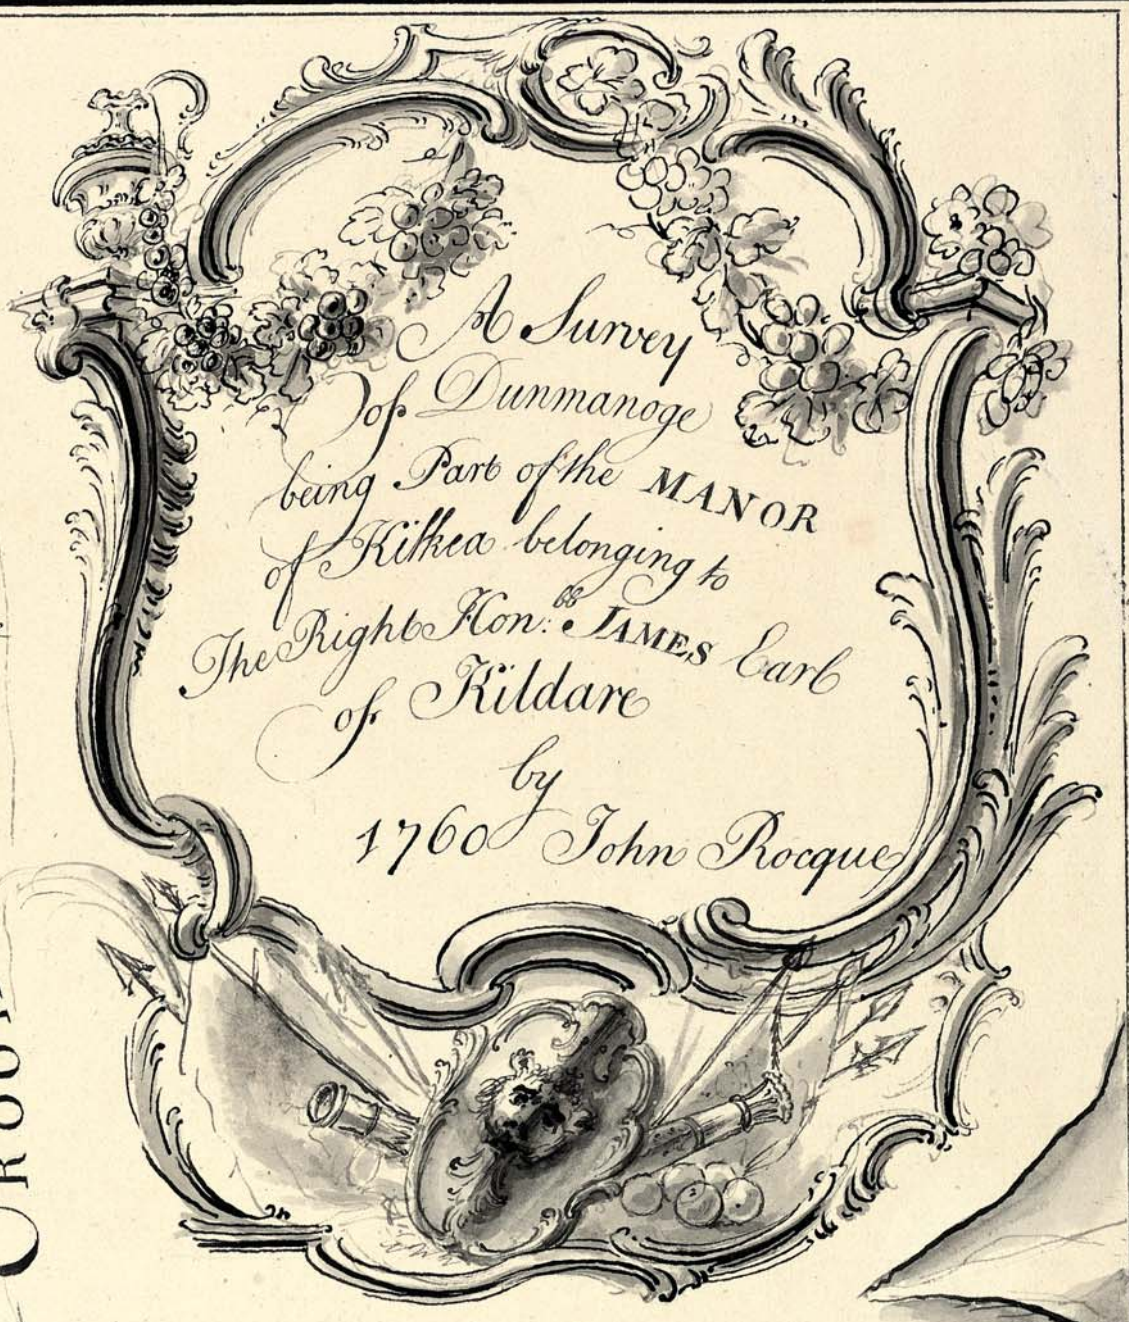 A Survey
of Dunmanoge
being Part of the MANOR
of Kilkea belonging to
The Right Hon:ble JAMES Earl
of Kildare
by
1760 John Rocque